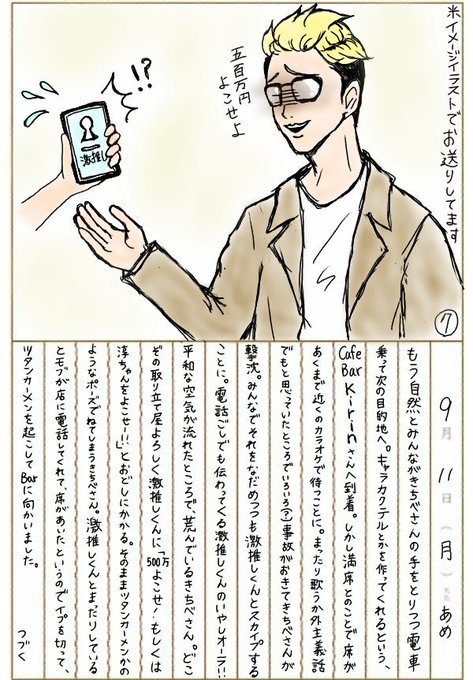 ※イメージイラストでお送りしてます
五百万円
よこせよ
!?
激推し
⑦
9月11日(月)天気 あめ
もう自然とみんながきちべさんの手をとりつつ電車
乗って次の目的地へ。キャラカクテルとかを作ってくれるという、
Cafe Bar Kirinさんへ到着。しかし満席とのことで席が
あくまで近くのカラオケで待つことに。まったり歌うか外主義話
でもと思っていたところでいろいろ(?)事故がおきてきちべさんが
撃沈。みんなでそれをなだめつつも激推しくんとスカイプする
ことに。電話ごしでも伝わってくる激推しくんのいやしオーラ!!
平和な空気が流れたところで、荒んでいるきちべさん。どこ
ぞの取り立て屋よろしく激推しくんに「500万よこせ!もしくは
淳ちゃんをよこせ!!」とおどしにかかる。そのままツタンカーメンかの
ようなポーズでねてしまうきちべさん。激推しくんとまったりしている
とモブが店に電話してくれて、席があいたというのでイプを切って、
ツタンカーメンを起こしてBarに向かいました。
つづく